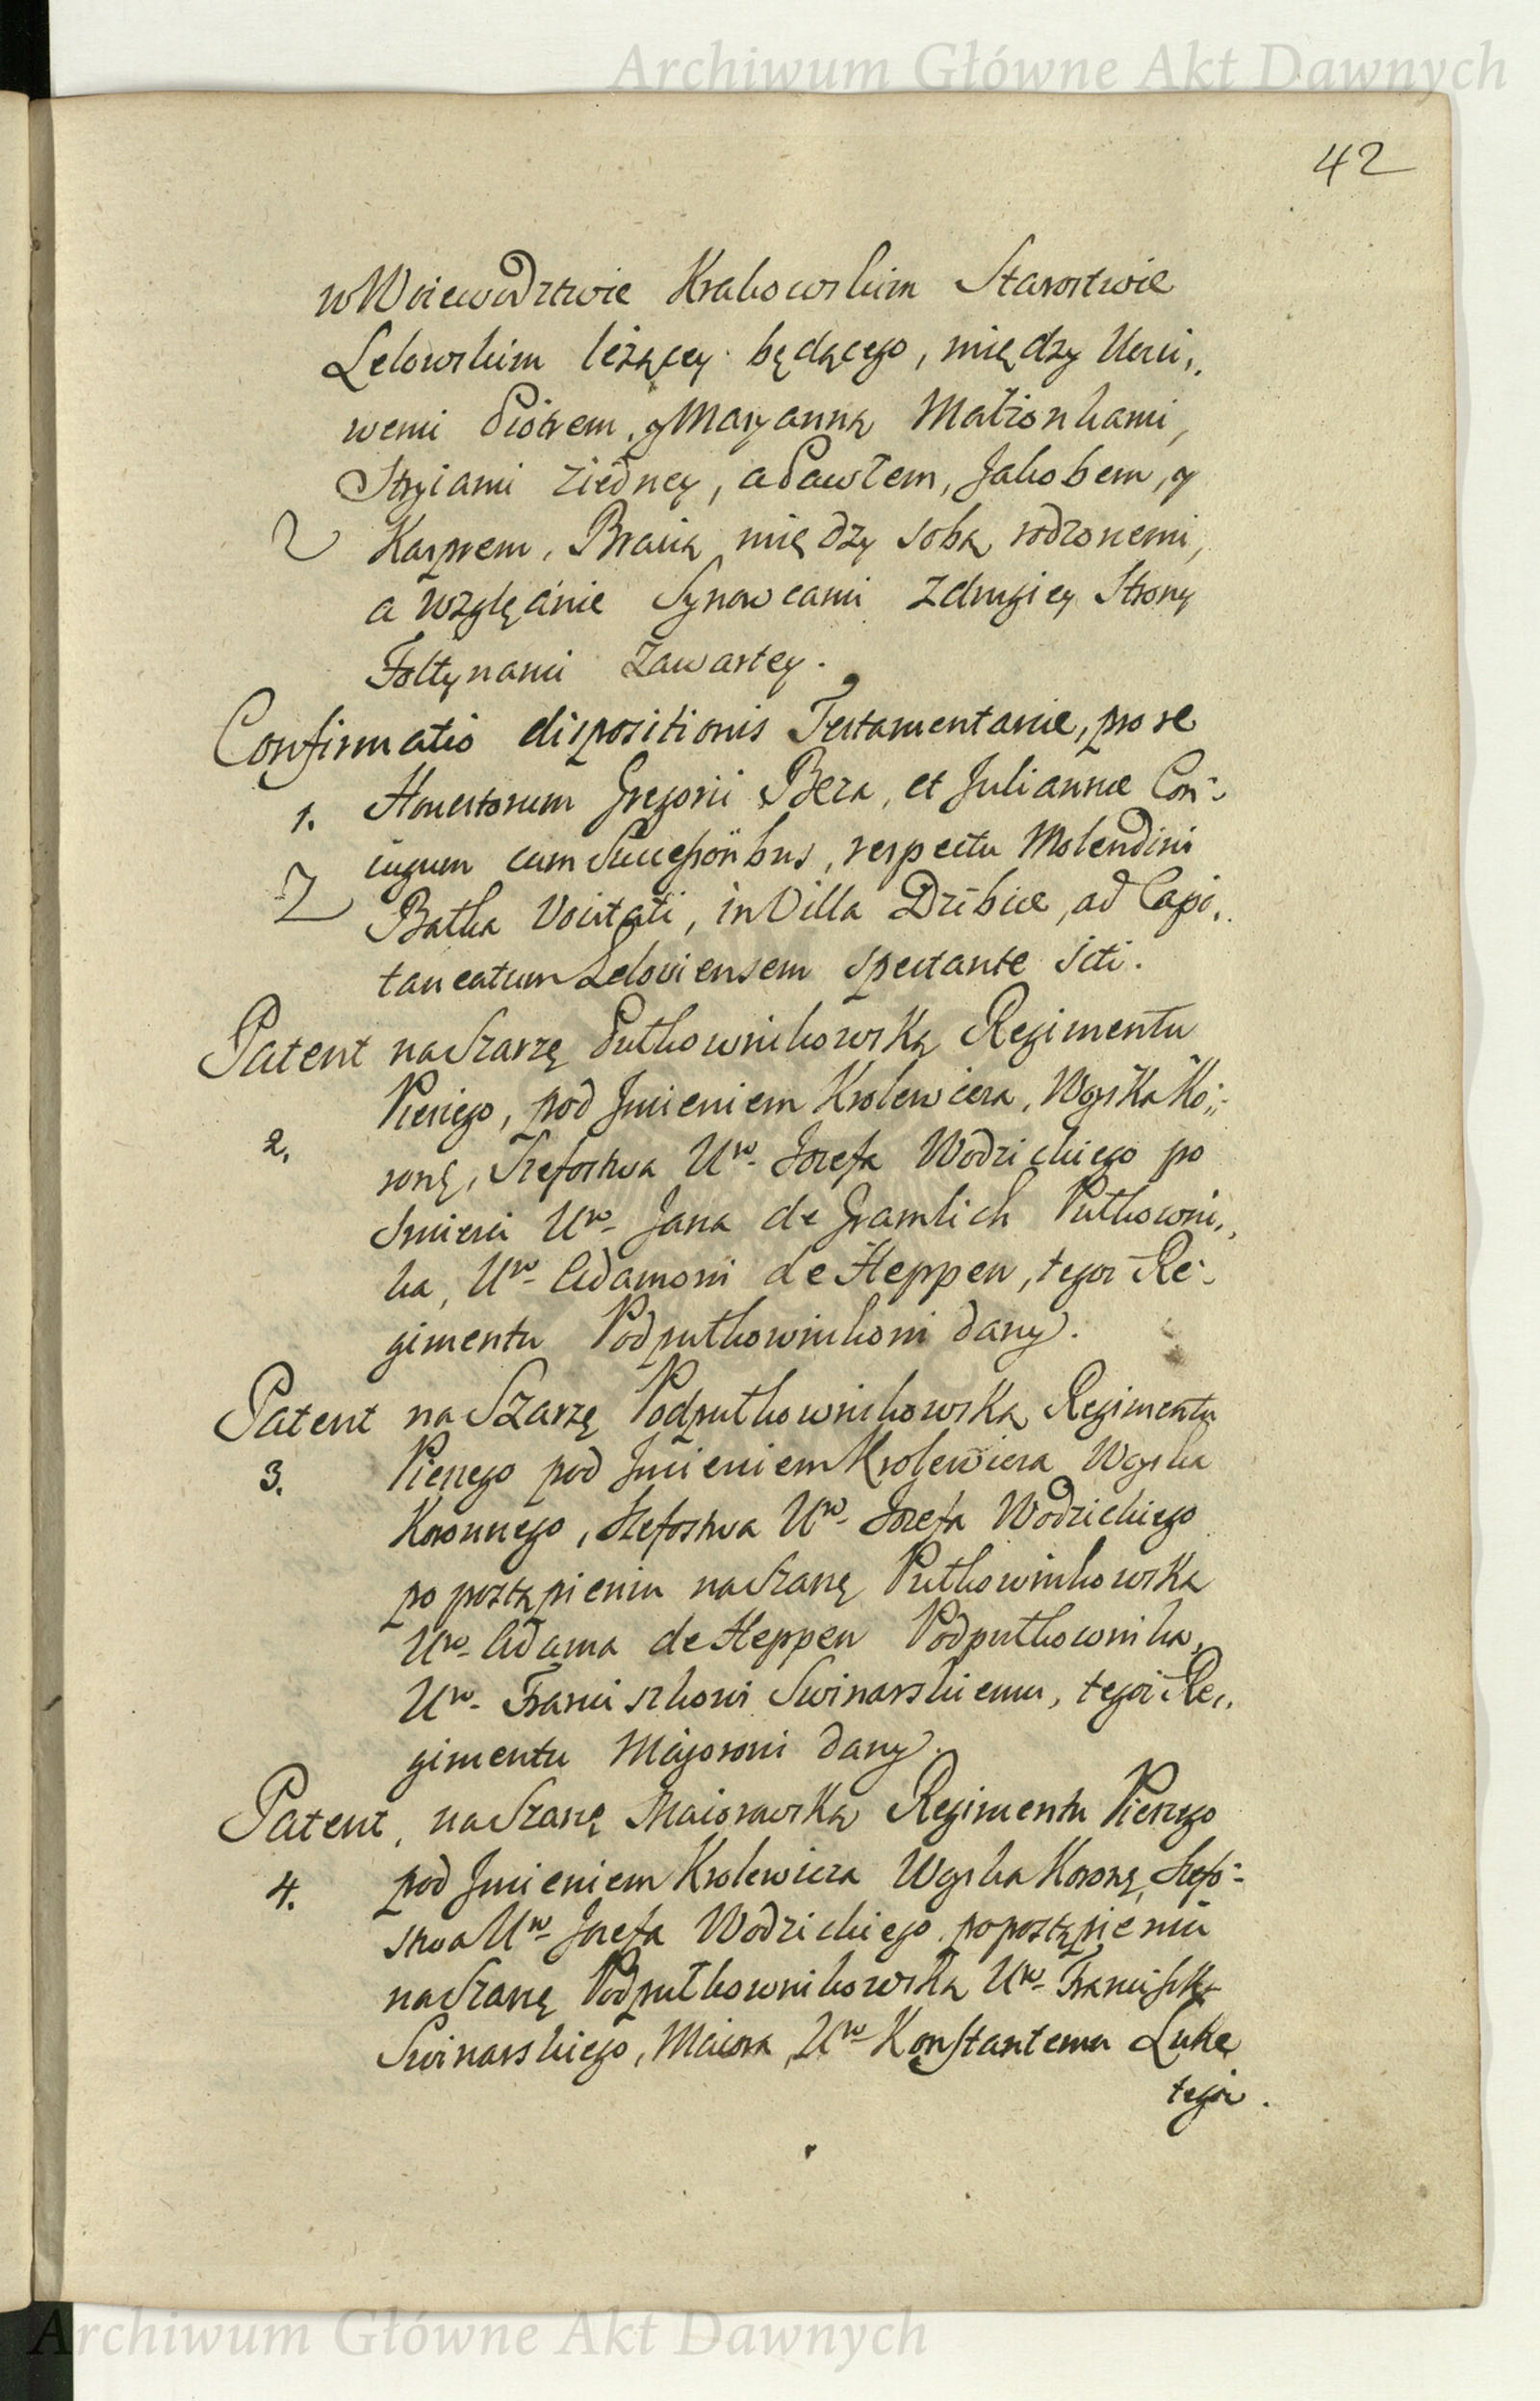 Archiwum Główne Akt Dawnych
42
w Woiewodztwie Krakowskim Starostwie
Lelowskim leżący będącego, między Ucci„
wemi Piotrem, y Maryanną Małżonkami,
Stryiami z iedney, a Pawłem, Jakobem, y
Kasprem, Bracią między sobą rodzonemi,
a względnie Synowcami z drugiey Strony
Fołtynami zawartey.
Confirmatio dispositionis Testamentariæ, pro se
1. Honestorum Gregorii Beza, et Juliannæ Con-
iugum cum Successoribus, respectu Molendini
Batka Vocitati, in Villa Dzibice, ad Capi„
taneatum Leloviensem spectante siti.
Patent na Szarzę Pułkownikowską Regimentu
Piesego, pod Jmieniem Krolewicza, Woyska Ko„
2.
ronę, Szefostwa Ur. Jozefa Wodzickiego po
Smierci Ur. Jana de Gramlich Pułkowni„
ka, Ur. Adamowi de Heppen, tegoż Re-
gimentu Podpułkownikowi dany.
Patent na Szarzę Podpułkownikowską Regimentu
3. Pieszego pod Jmieniem Krolewicza Woyska
Koronnego, Szefostwa Ur. Jozefa Wodzickiego
po postąpieniu na Szarżę Pułkownikowską
Ur. Adama de Heppen Podpułkownika,
Ur. Franciszkowi Swinarskiemu, tegoż Re„
gimentu Majorowi dany.
Patent, na Szarżę Maiorowską Regimentu Pieszego
4. pod Jmieniem Krolewicza Woyska Koronę, Szefo-
stwa Ur. Jozefa Wodzickiego, po postąpieniu
na Szarżę Podpułkownikowską Ur. Franciszka
Swinarskiego, Maiora, Ur. Konstantemu Luke
tegoż.
Archiwum Główne Akt Dawnych